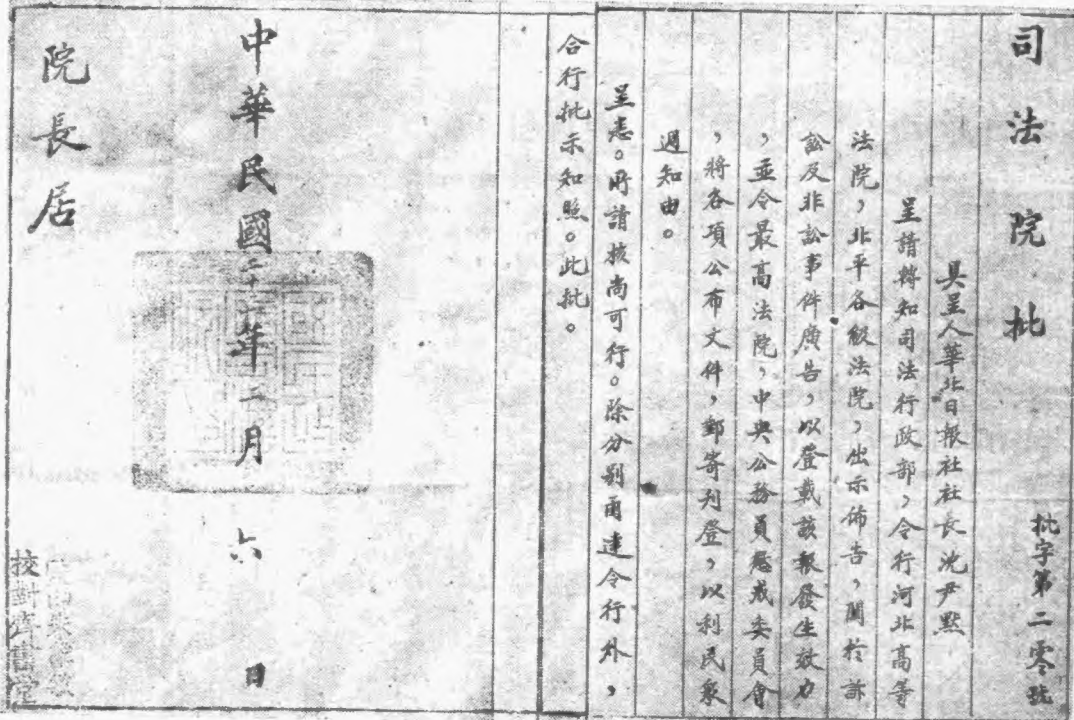 司法院批
批字第二零號
具呈人華北日報社社長沈尹默
呈請轉知司法行政部，令行河北高等
法院，北平各級法院，出示佈告，關於訴
訟及非訟事件廣告，以登載該報發生效力
，並令最高法院，中央公務員懲戒委員會
，將各項公布文件，郵寄刊登，以利民衆
週知由。
呈悉。所請核尚可行。除分別函達令行外，
合行批示知照。此批。
中華民國二十一年二月六日
院長居
校對